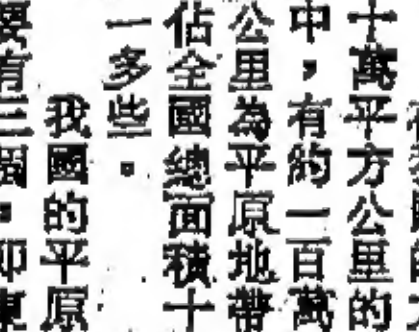 十萬平方公里的
中,有約一百萬
公里為平原地帶
佔全國總面積十
一多些。
我國的平原